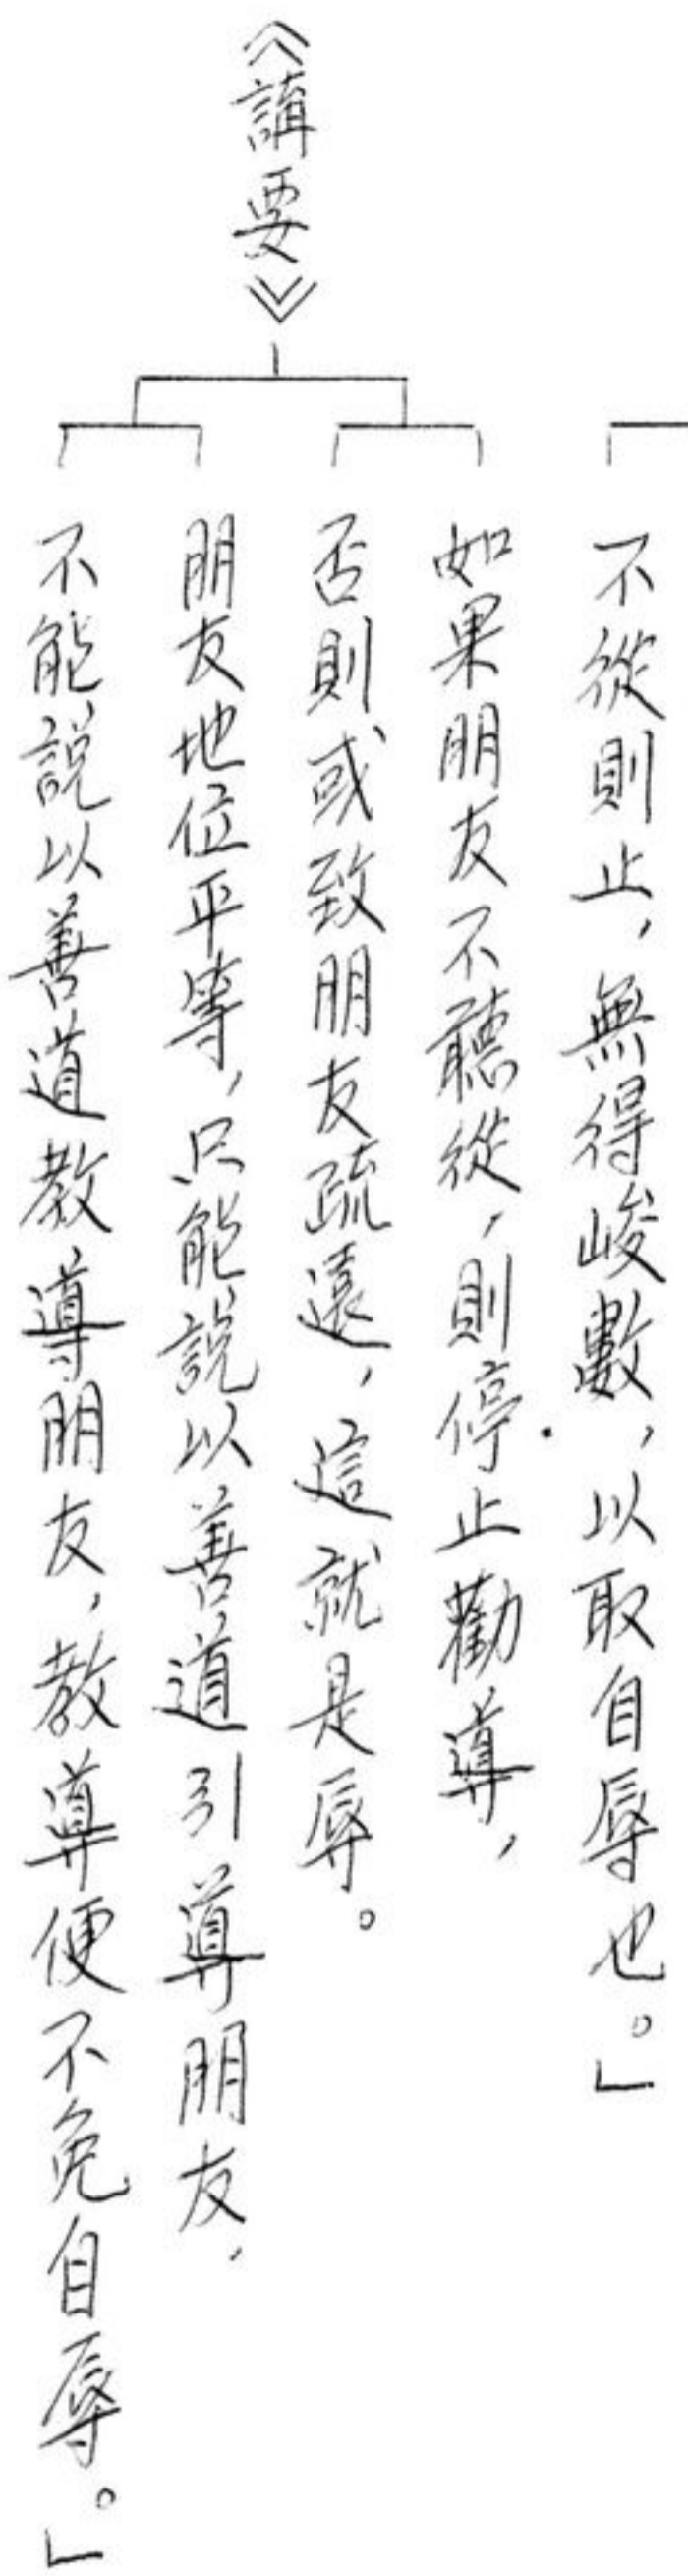 不從則止，無得峻數，以取自辱也。」
如果朋友不聽從，則停止勸導，
否則或致朋友疏遠，這就是辱。
朋友地位平等，只能說以善道引導朋友，
不能說以善道教導朋友，教導便不免自辱。」
《講要》